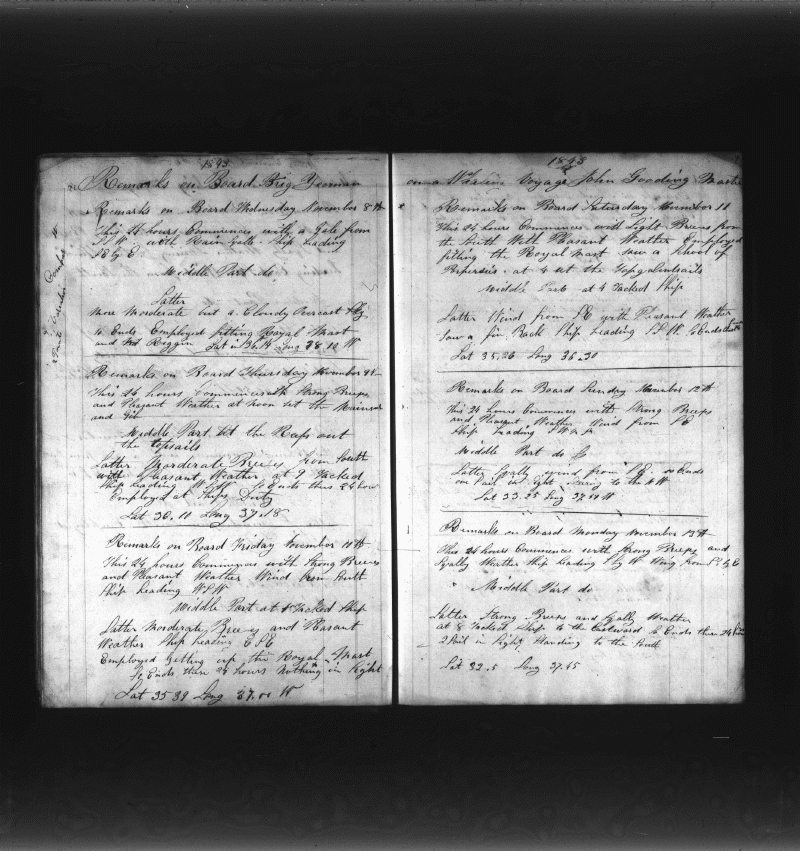 1843
Remarks on Board Brig Yeoman
Remarks on Board Wednesday November 8th
This 24 hours Commences with a Gale from
with Rain Gale Ship Heading
S by E
Middle Part do
Latter
More Morderate but a Cloudy Overcast Sky
So Ends Employed fitting Royal Mast
and Riggin Lat 36.14 Long 38.10 W
Remarks on Board Thursday November 9th
This 24 hours Commences with Strong Breeses
and Pleasant Weather at Noon set the Mainsail
and Gib
Middle Part let the Reefs out
the topsails
Latter Morderate Breeses from South
with Pleasant Weather at 9 Tacked
Ship Heading So Ends this 24 hours
Employed at Ships Duty
Lat 36.11 Long 37.18
Remarks on Board Friday November 10th
This 24 hours Commences with Strong Breeses
and Pleasant Weather Wind from South
Ship Heading WSW
Middle Part at Tacked Ship
Latter Morderate Breeses and Pleasant
Weather Ship Heading ESE
Employed Getting up the Royal Mast
So Ends these 24 hours nothing in Sight
Lat 35 39 Long 37.00 W
1843
on a Whaleing Voyage John Gooding Master
Remarks on Board Saturday November 11
This 24 hours Commences with Light Breeses from
the South With Pleasant Weather Employed
fitting the Royal Mast saw a School of
Poperises at 4 set the Topgalentsails
Middle Part at 4 Tacked Ship
Latter Wind from SE with Pleasant Weather
Saw a fin Back Ship Heading S S W So Ends
Lat 35.26 Long 36.30
Remarks on Board Sunday November 12th
This 24 hours Commences with Strong Breeses
and Pleasant Weather Wind from SE
Ship Heading
Middle Part do
Latter Sqally wind from So Ends
on Sail in sight to the
Lat 33.25 Long 37.00 W
Remarks on Board Monday November 13th
This 24 hours Commences with Strong Breeses and
Sqally Weather Ship Heading by W Wing from S by E
Middle Part do
Latter Strong Breeses and Sqally Weather
at 8 Tacked Ships to the Eastward So Ends these 24 hours
2 Sail in Sight Standing to the South
Lat 32.5 Long 37.45